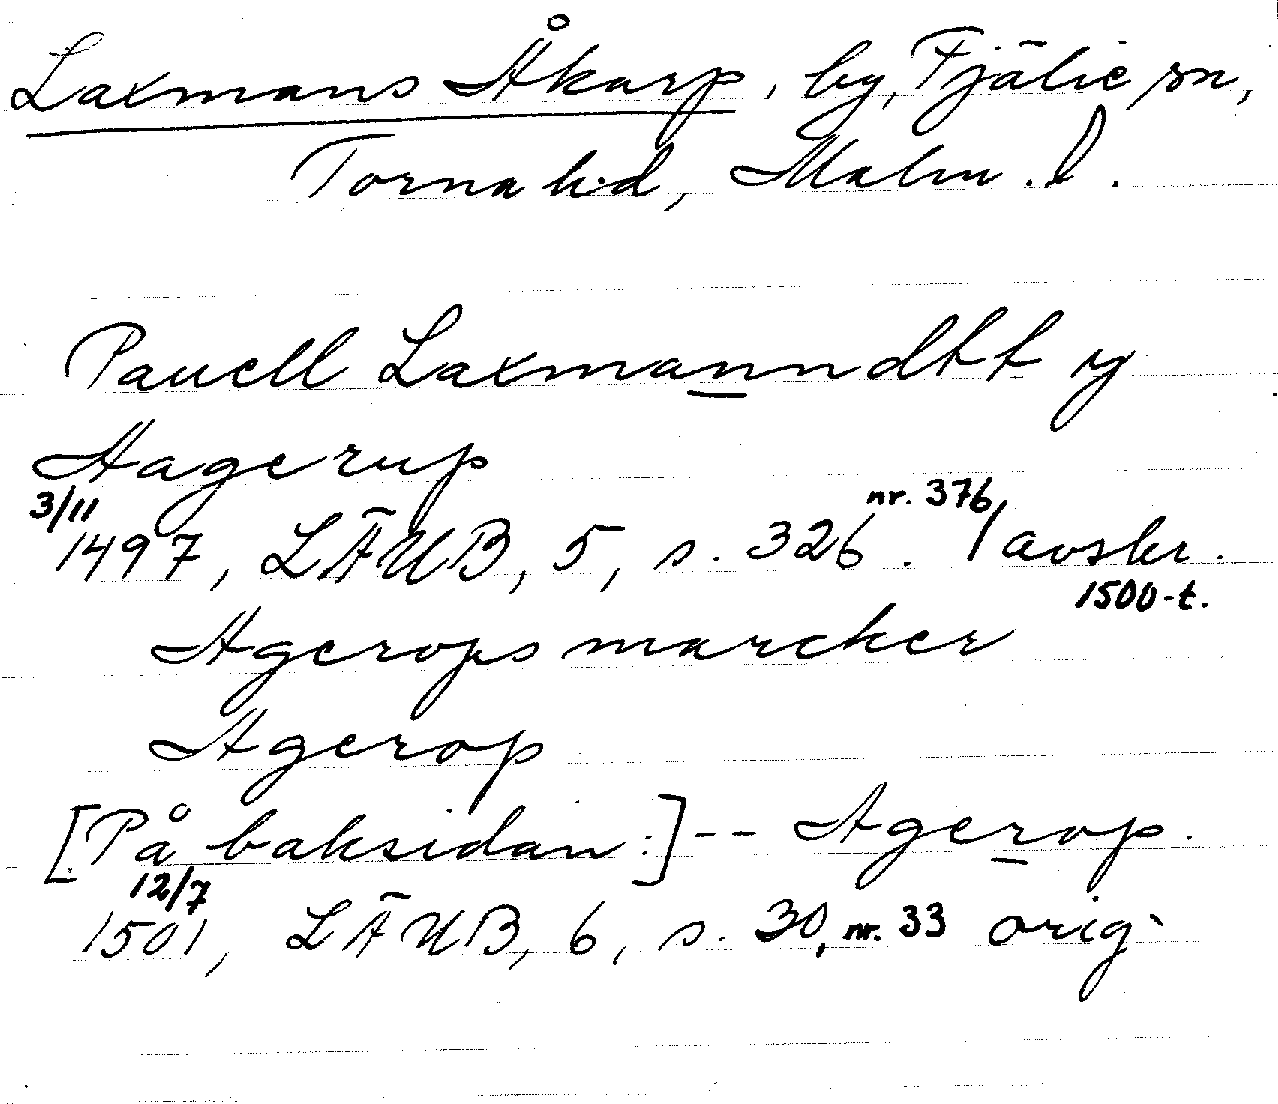 Laxmans Åkarp, by, Fjälie sn,
Torna hd, Malm. l.
Pauell Laxmanndtt y
Hagerup
3/11
nr. 376
1497, LÄUB, 5, s. 326. / avskr.
1500-t.
Agerops marcker
Agerop
[På baksidan:] -- Agerop.
12/7
1501, LÄUB, 6, s. 30, nr. 33 orig.